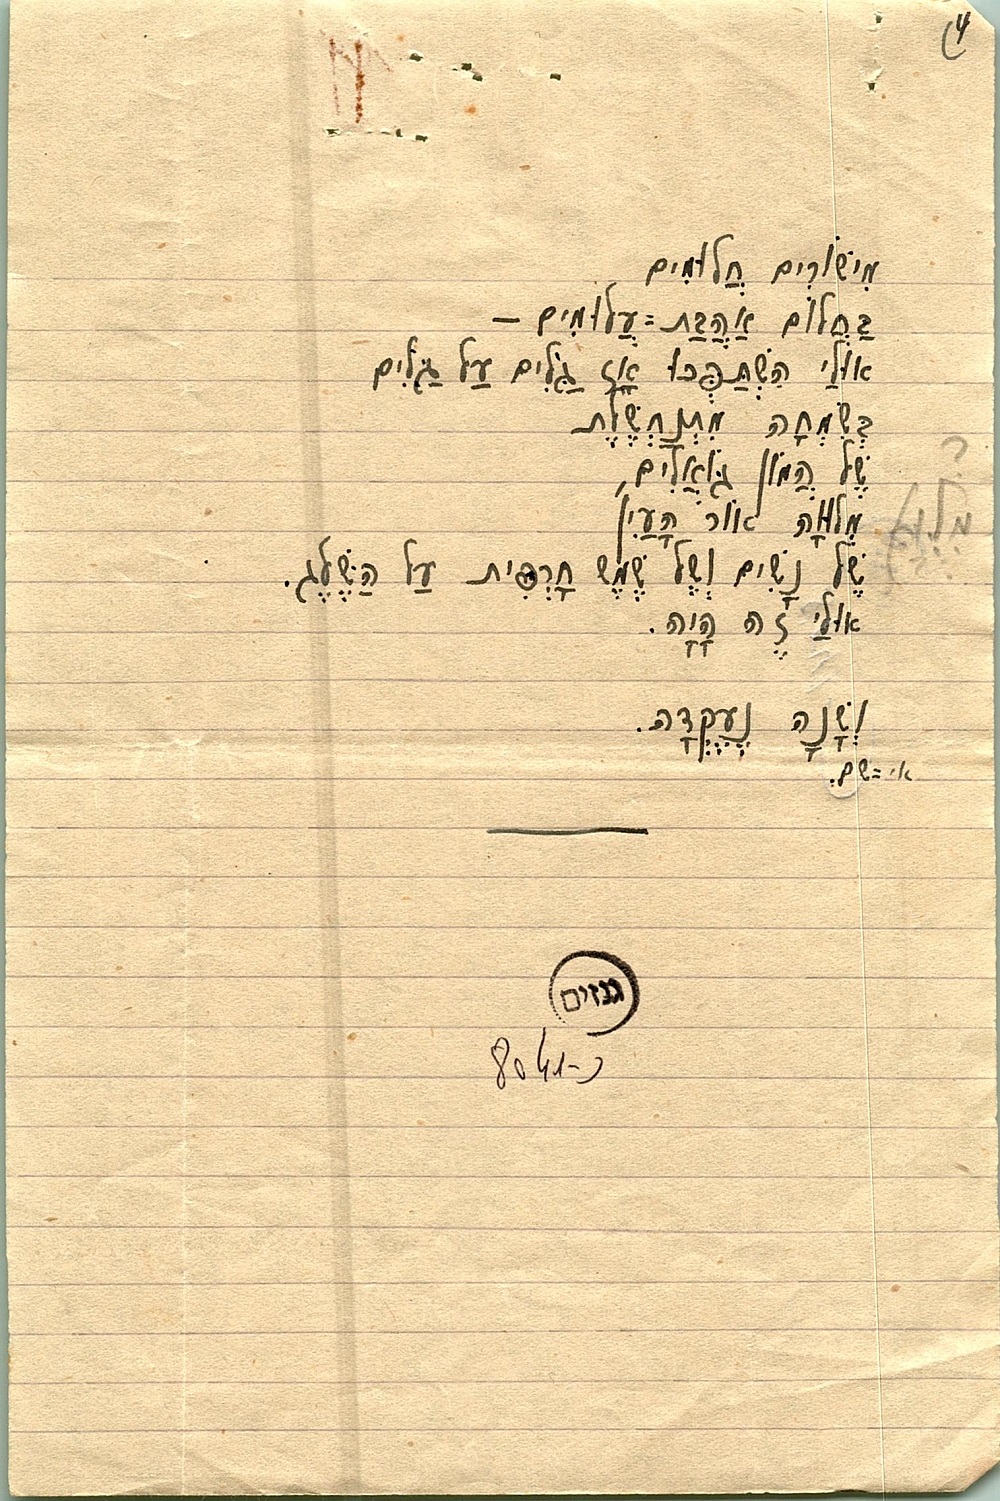 4)
מִישׁוֹרִים חֲלוּמִים
בַּחֲלוֹם אַהֲבַת=עֲלוּמִים –
אוּלַי הִשְׁתַּפְּכוּ אָז גַּלִּים עַל גַּלִּים
בְּשִׂמְחָה מִתְנַחְשֶׁלֶת
שֶׁל הֲמוֹן גּוֹאֲלִים,
מְלֻוָּה אוֹר הָעַיִן
שֶׁל נָשִׁים וְשֶׁל שֶׁמֶשׁ חָרְפִּית עַל הַשֶּׁלֶג.
אוּלַי זֶה הָיָה.
וְשָׁנָה נֶעֶקְדָה.
אי=שם.
גנזים